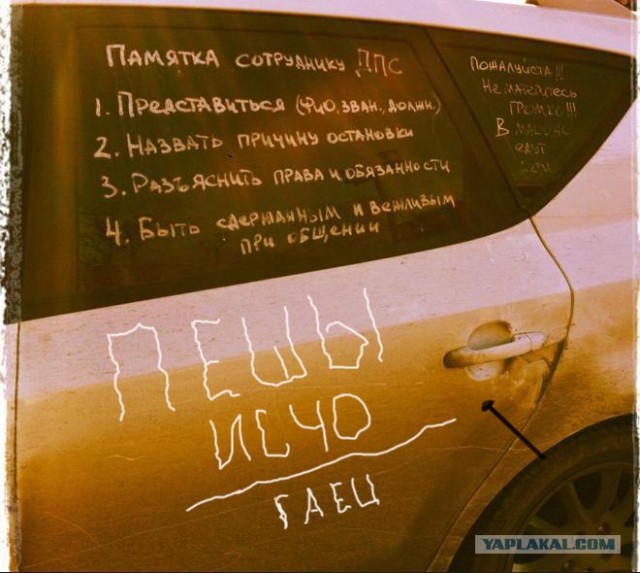 Памятка сотруднику ДПС
1. Представиться (ФИО, зван., должн.)
2. Назвать причину остановки
3. Разъяснить права и обязанности
4. Быть сдержанным и вежливым
при общении
Пожалуйста!!!
Не матейтесь
громко!!!
В
едут
ПЕШЫ
ИСЧО
ГАЕЦ
YAPLAKAL.COM